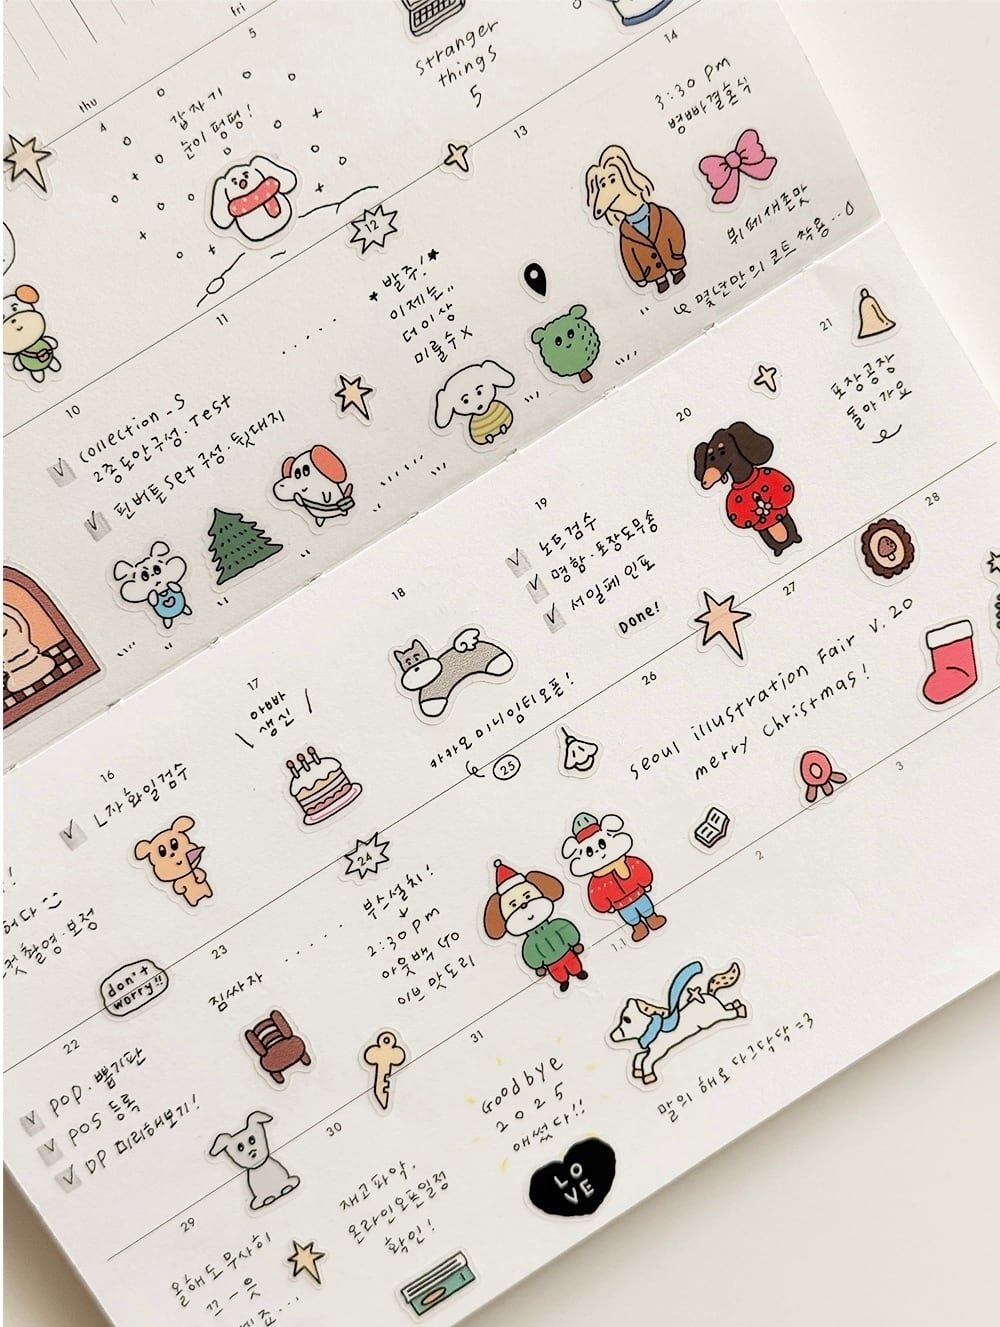 thu
fri
4
갑자기
눈이 펑펑!
5
stranger
things
5
10
collection_s
2종 도안구성·Test
핀버튼set 구성·뒷대지
11
12
*발주!*
이제는..
더이상
미룰수x
13
14
3:30 pm
벙빠결혼식
뷔페새존맛
몇년만의 코트 착용..
16
L자화일검수
17
아빠
생신
18
카카오 미니임티오픈!
19
노트검수
명함·포장도무송
서일페 인포
Done!
20
21
포장공장
돌아가요
컷촬영·보정
don't
worry!!
22
POP·뽑기판
POS 등록
DP 미리해보기!
23
짐싸자
24
부스설치!
2:30pm
아웃백 GO
이브 맛도리
25
26
27
28
seoul illustration Fair V.20
merry Christmas!
29
올해도 무사히
끄-읏
30
재고파악,
온라인오픈일정
확인!
31
Goodbye
2025
애썼다!!
LO
VE
1.1
말의 해로 다그닥닥=3
2
3